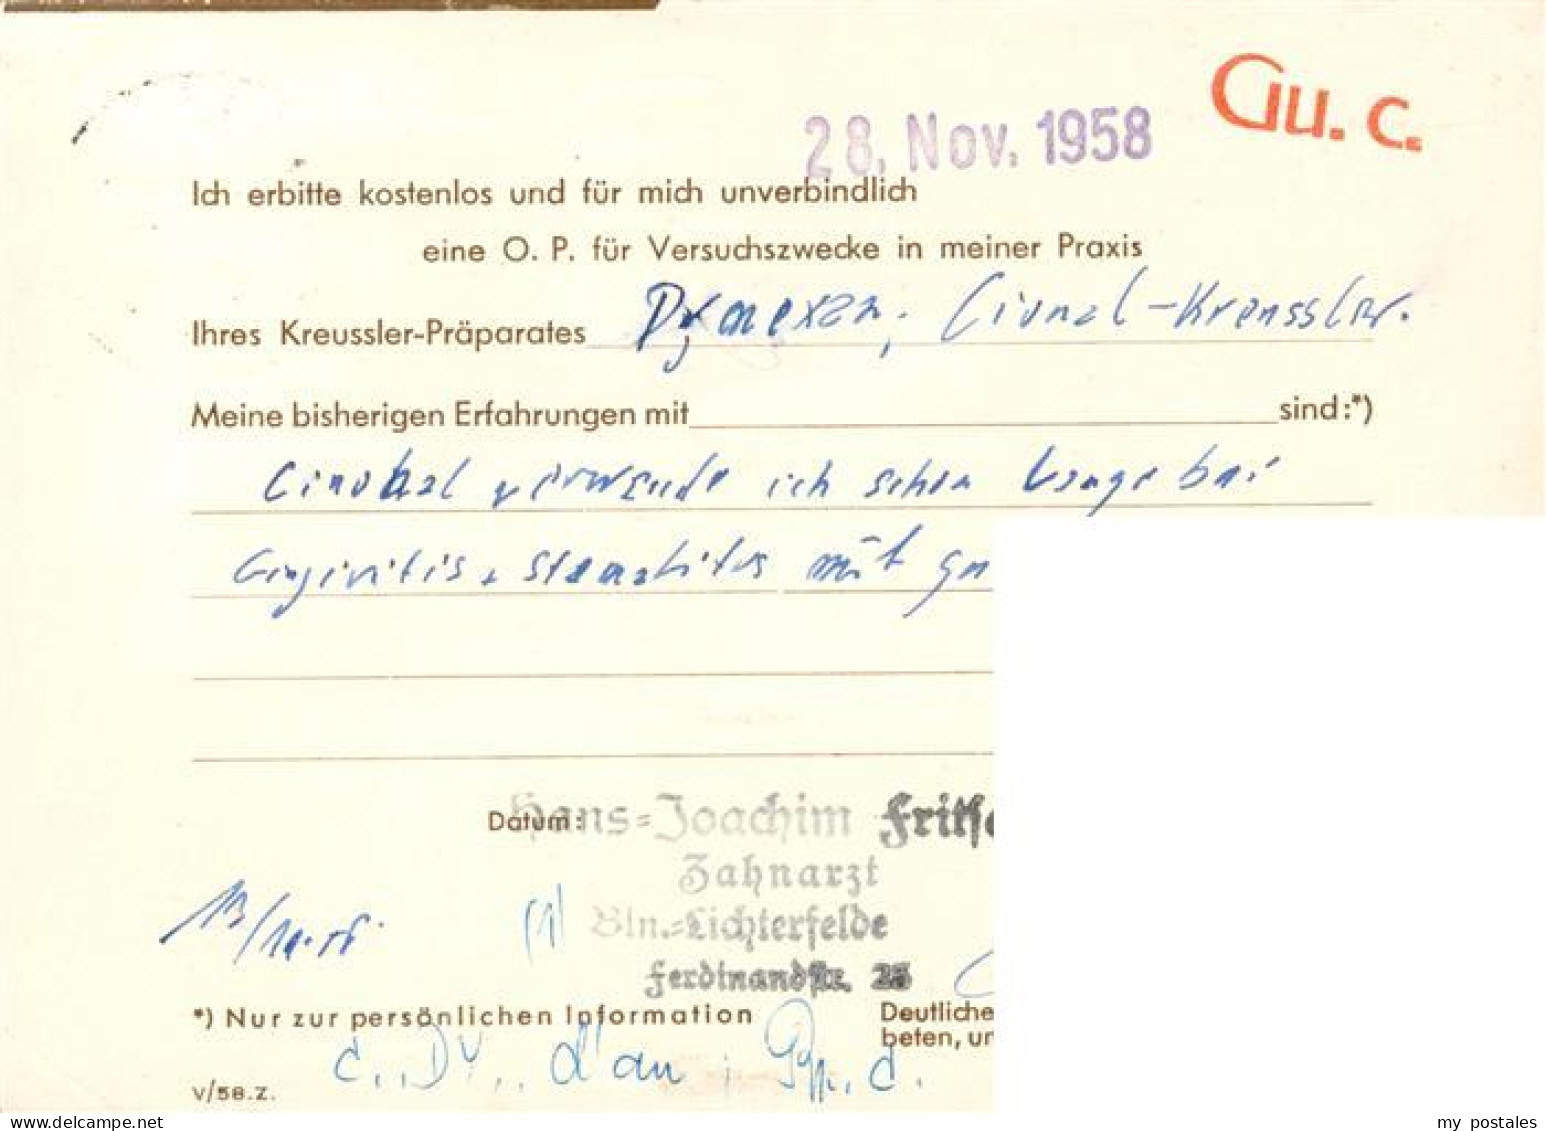 Gu. c.
28. Nov. 1958
Ich erbitte kostenlos und für mich unverbindlich
eine O. P. für Versuchszwecke in meiner Praxis
Ihres Kreussler-Präparates Dynexan, Cional-Kreussler.
Meine bisherigen Erfahrungen mit sind:*)
verwende ich schon lange bei
Gingivitis mit
Datum: Hans-Joachim Fritsc
Zahnarzt
Bln.-Lichterfelde
Ferdinandstr.
*) Nur zur persönlichen Information
Deutliche
beten, un
V/58.Z.
my postales